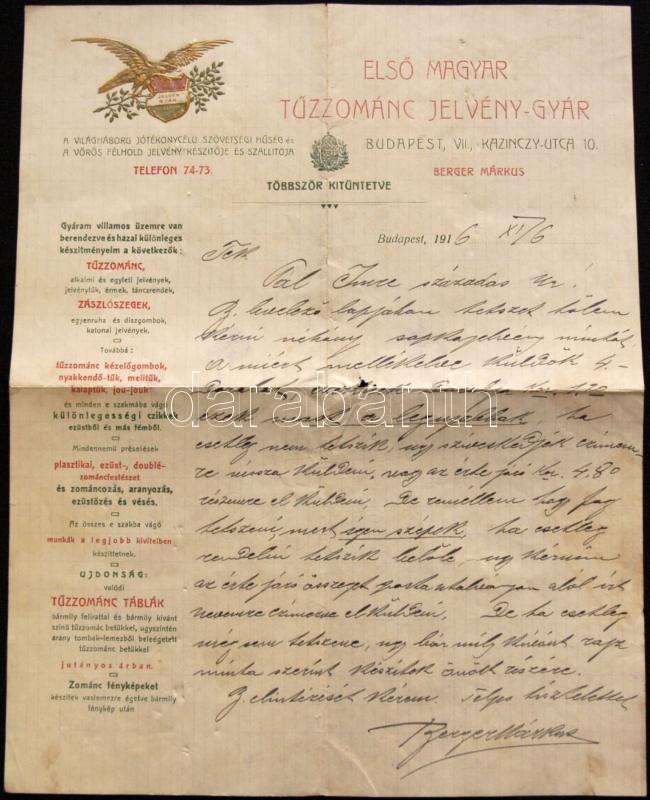 JELVÉNY
GYÁR
ELSŐ MAGYAR
TŰZZOMÁNC JELVÉNY-GYÁR
A VILÁGHÁBORU JÓTÉKONYCÉLU SZÖVETSÉGI HŰSÉG és
A VÖRÖS FÉLHOLD JELVÉNY KÉSZITŐJE ÉS SZALLITÓJA
BUDAPEST, VII., KAZINCZY-UTCA 10.
TELEFON 74-73.
BERGER MÁRKUS
TÖBBSZÖR KITÜNTETVE
Budapest, 1916 XI/6
Gyáram villamos üzemre van
berendezve és hazai különleges
készitményeim a következők:
TŰZZOMÁNC,
alkalmi és egyleti jelvények,
jelvénytűk, érmek, táncrendek,
ZÁSZLÓSZEGEK,
egyenruha és diszgombok,
katonai jelvények.
Továbbá:
tűzzománc kézelőgombok,
nyakkendő-tűk, melltűk,
kalaptűk, jou-jouk
és minden e szakmába vágó
különlegességi czikkek
ezüstből és más fémből.
Mindennemű préselések
plasztikai, ezüst-, doublé-
zománcfestészet
és zománcozás, aranyozás,
ezüstözés és vésés.
Az összes e szakba vágó
munkák a legjobb kivitelben
készittetnek.
UJDONSÁG:
valódi
TŰZZOMÁNC TÁBLÁK
bármily felirattal és bármily kivánt
szinű tűzzománc betűkkel, ugyszintén
arany tombak-lemezből beleégetett
tűzzománc betűkkel
jutányos árban.
Zománc fényképeket
készitek vaslemezre égetve bármily
fénykép után
Tek.
Pál Imre százados Úr!
B. levelező lapjában tetszet tőlem
kérni nehány sapkajelvény mintát
a miért mellékelve küldök 4-
darabot, 1.20
ezek most a legujabbak, ha
esetleg nem tetszik, ugy sziveskedjék czimem-
re vissza küldeni, vagy az érte járó Kor. 4.80
részemre elküldeni, De remélem hogy fog
tetszeni, mert igen szépek, ha esetleg
rendelni tetszik belőle, ugy kérném
az érte járó összeget posta utalványon alól irt
nevemre czimezve elküldeni, De ha esetleg
még sem tetszene, ugy bár mily kivánt rajz
minta szerint készitek önnek részére.
B. elintézését kérem. Teljes tisztelettel
Berger Márkus
darabanth